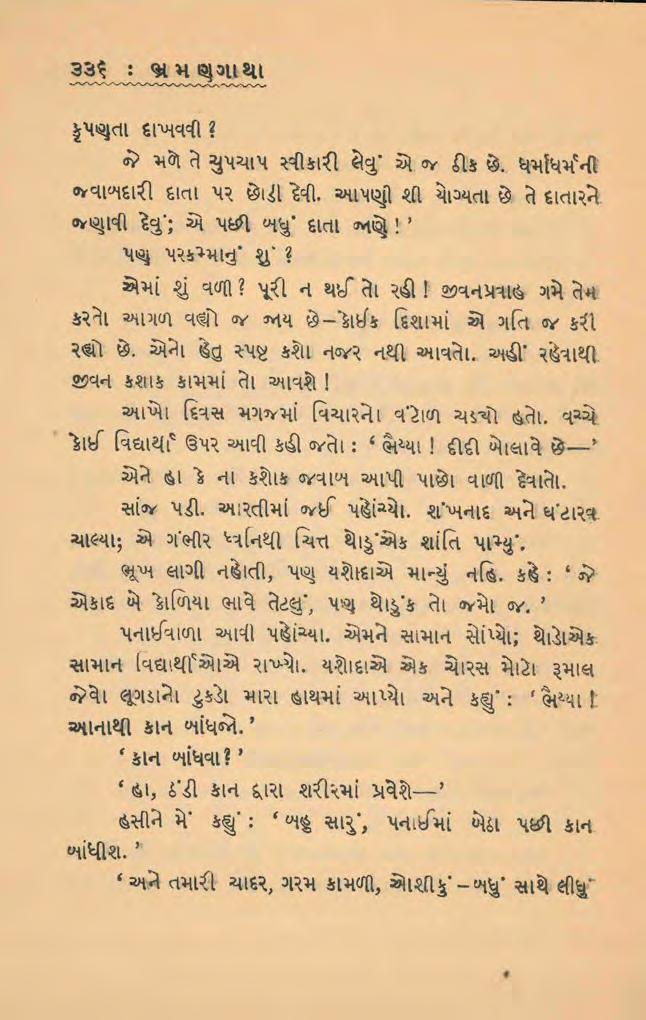 ૩૩૬ : ભ્રમણગાથા
કૃપણતા દાખવવી ?
જે મળે તે ચુપચાપ સ્વીકારી લેવું એ જ ઠીક છે. ધર્માધર્મની
જવાબદારી દાતા પર છોડી દેવી. આપણી શી યોગ્યતા છે તે દાતારને
જણાવી દેવું; એ પછી બધું દાતા જાણે ! ’
પણ પરકમ્માનું શું ?
એમાં શું વળી ? પૂરી ન થઈ તો રહી ! જીવનપ્રવાહ ગમે તેમ
કરતો આગળ વહ્યો જ જાય છે–કોઈક દિશામાં એ ગતિ જ કરી
રહ્યો છે. એનો હેતુ સ્પષ્ટ કશો નજર નથી આવતો. અહીં રહેવાથી
જીવન કશાક કામમાં તો આવશે !
આખો દિવસ મગજમાં વિચારનો વંટોળ ચડ્યો હતો. વચ્ચે
કોઈ વિદ્યાર્થી ઉપર આવી કહી જતો : ‘ ભૈય્યા ! દીદી બોલાવે છે—’
એને હા કે ના કશોક જવાબ આપી પાછો વાળી દેવાતો.
સાંજ પડી. આરતીમાં જઈ પહોંચ્યો. શંખનાદ અને ઘંટારવ
ચાલ્યા; એ ગંભીર ધ્વનિથી ચિત્ત થોડુંએક શાંતિ પામ્યું.
ભૂખ લાગી નહોતી, પણ યશોદાએ માન્યું નહિ. કહે : ‘ જે
એકાદ બે કોળિયા ભાવે તેટલું, પણ થોડુંક તો જમો જ. ’
પનાઈવાળા આવી પહોંચ્યા. એમને સામાન સોંપ્યો; થોડોએક
સામાન વિદ્યાર્થીઓએ રાખ્યો. યશોદાએ એક ચોરસ મોટો રૂમાલ
જેવો લૂગડાનો ટુકડો મારા હાથમાં આપ્યો અને કહ્યું : ‘ ભૈય્યા !
આનાથી કાન બાંધજો. ’
‘ કાન બાંધવા ? ’
‘ હા, ઠંડી કાન દ્વારા શરીરમાં પ્રવેશે—’
હસીને મેં કહ્યું : ‘ બહુ સારું, પનાઈમાં બેઠા પછી કાન
બાંધીશ. ’
‘ અને તમારી ચાદર, ગરમ કામળી, ઓશીકું – બધું સાથે લીધું